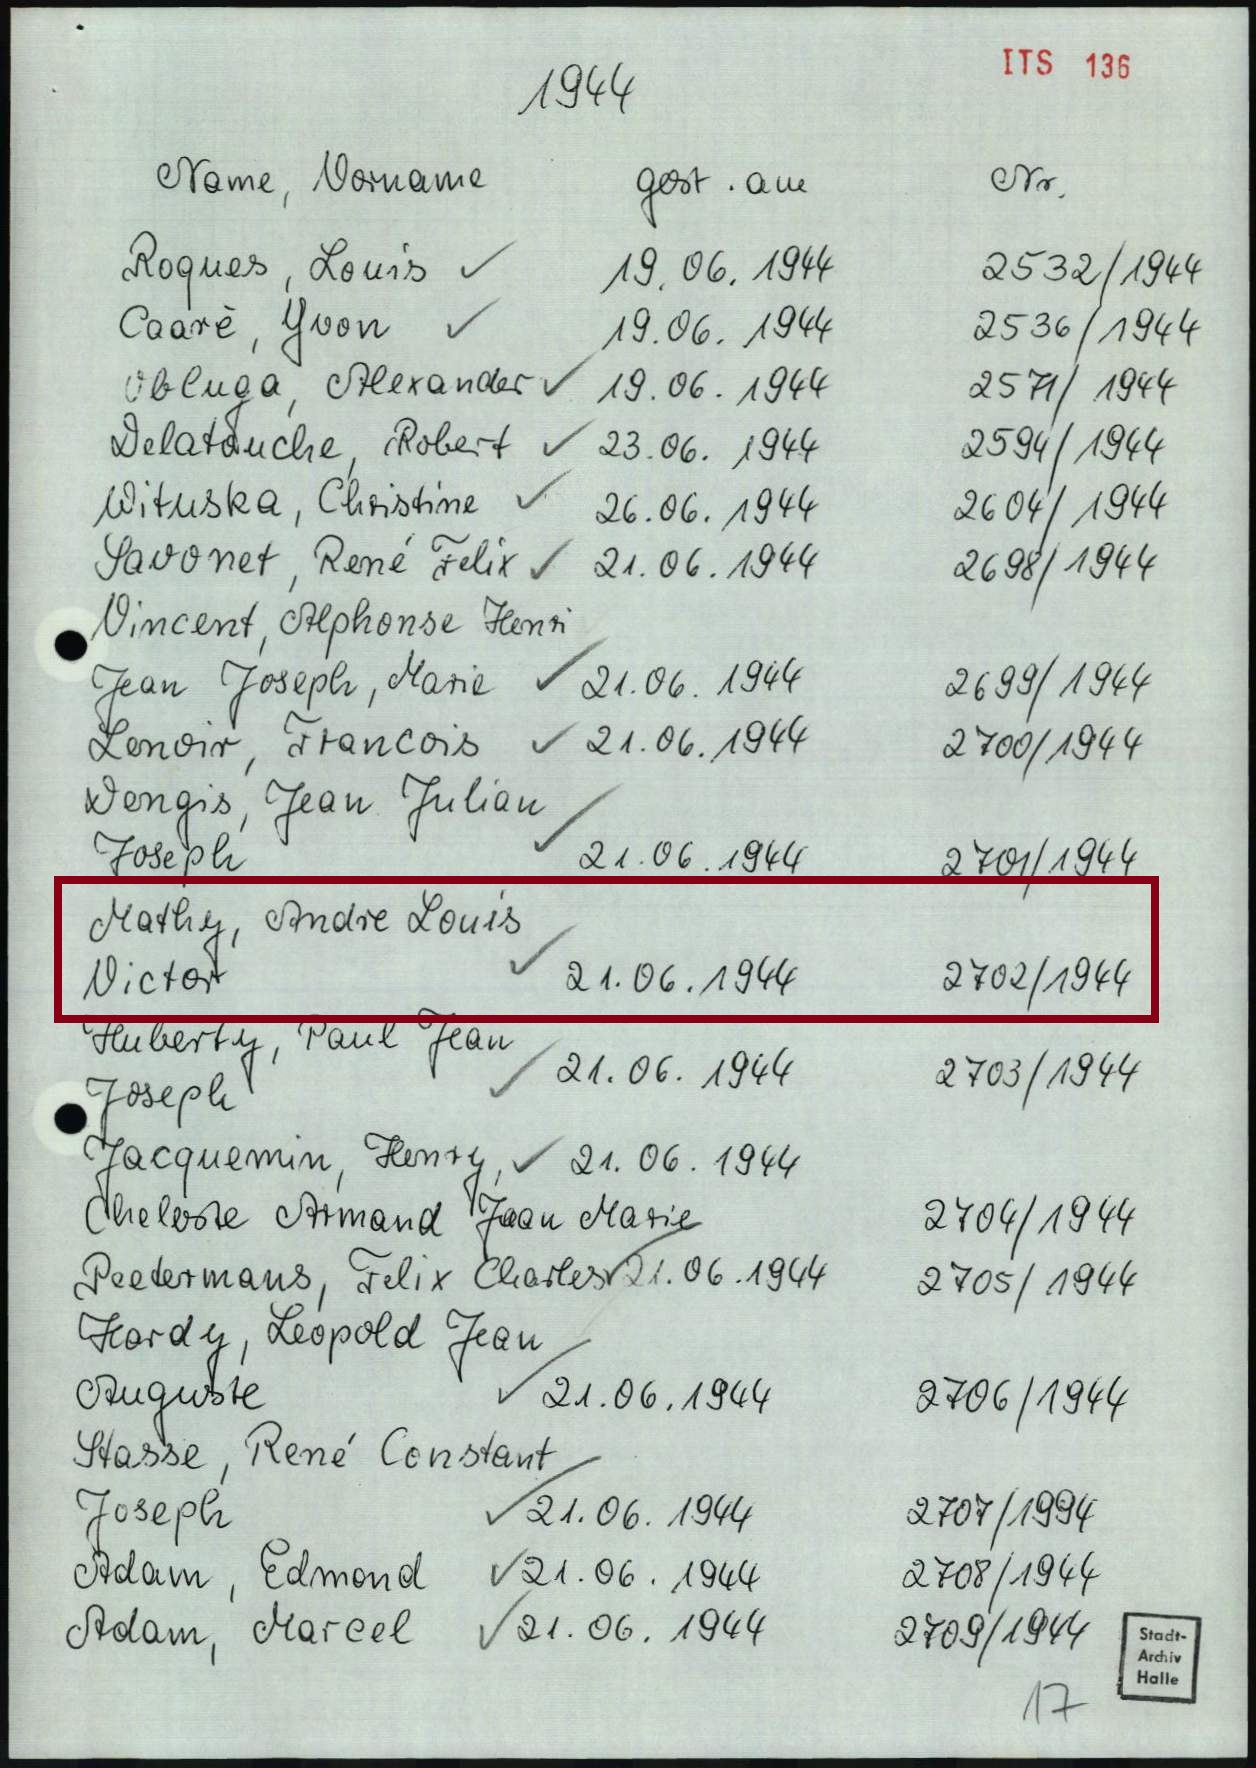 ITS 136
1944
Name, Vorname gest. am Nr.
Roques, Louis ✓ 19.06.1944 2532/1944
Caarè, Yvon ✓ 19.06.1944 2536/1944
Obluga, Alexander ✓ 19.06.1944 2571/1944
Delatouche, Robert ✓ 23.06.1944 2594/1944
Wituska, Christine ✓ 26.06.1944 2604/1944
Savonet, René Felix ✓ 21.06.1944 2698/1944
Vincent, Alphonse Henri
Jean Joseph, Marie ✓ 21.06.1944 2699/1944
Lenoir, Francois ✓ 21.06.1944 2700/1944
Dengis, Jean Julian
Joseph ✓ 21.06.1944 2701/1944
Mathy, Andre Louis
Victor ✓ 21.06.1944 2702/1944
Huberty, Paul Jean
Joseph ✓ 21.06.1944 2703/1944
Jacquemin, Henry, ✓ 21.06.1944
Armand Jean Marie 2704/1944
Peetermans, Felix Charles ✓ 21.06.1944 2705/1944
Hardy, Leopold Jean
Auguste ✓ 21.06.1944 2706/1944
Stasse, René Constant
Joseph ✓ 21.06.1944 2707/1994
Adam, Edmond ✓ 21.06.1944 2708/1944
Adam, Marcel ✓ 21.06.1944 2709/1944
Stadt-
Archiv
Halle
17